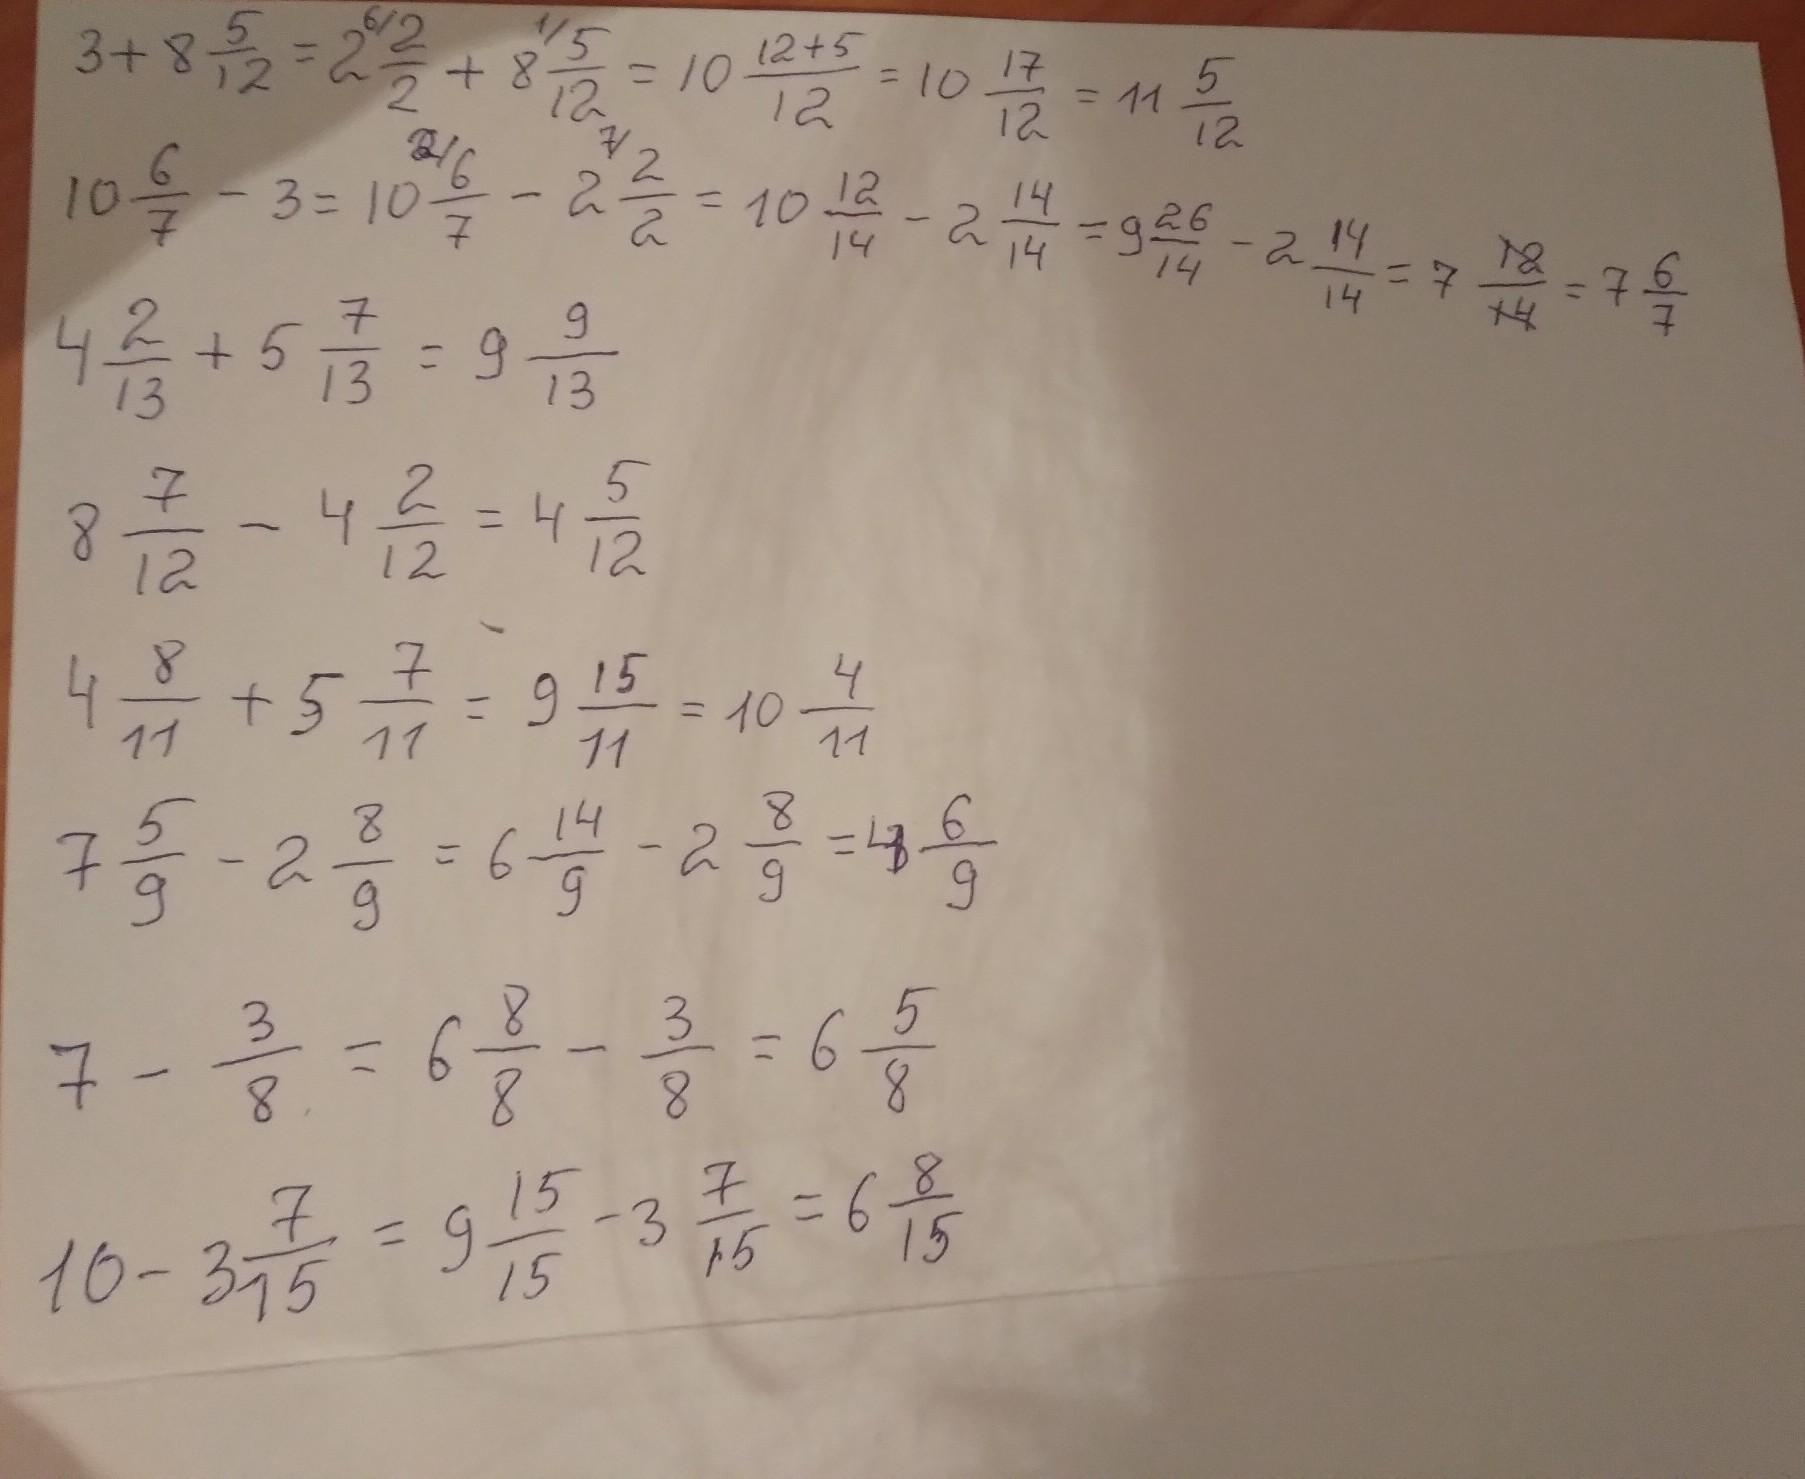 3 + 8 5/12 = 2 6/ 2/2 + 8 1/ 5/12 = 10 12+5/12 = 10 17/12 = 11 5/12
10 6/7 - 3 = 10 2/ 6/7 - 2 7/ 2/2 = 10 12/14 - 2 14/14 = 9 26/14 - 2 14/14 = 7 12/14 = 7 6/7
4 2/13 + 5 7/13 = 9 9/13
8 7/12 - 4 2/12 = 4 5/12
4 8/11 + 5 7/11 = 9 15/11 = 10 4/11
7 5/9 - 2 8/9 = 6 14/9 - 2 8/9 = 4 6/9
7 - 3/8 = 6 8/8 - 3/8 = 6 5/8
10 - 3 7/15 = 9 15/15 - 3 7/15 = 6 8/15